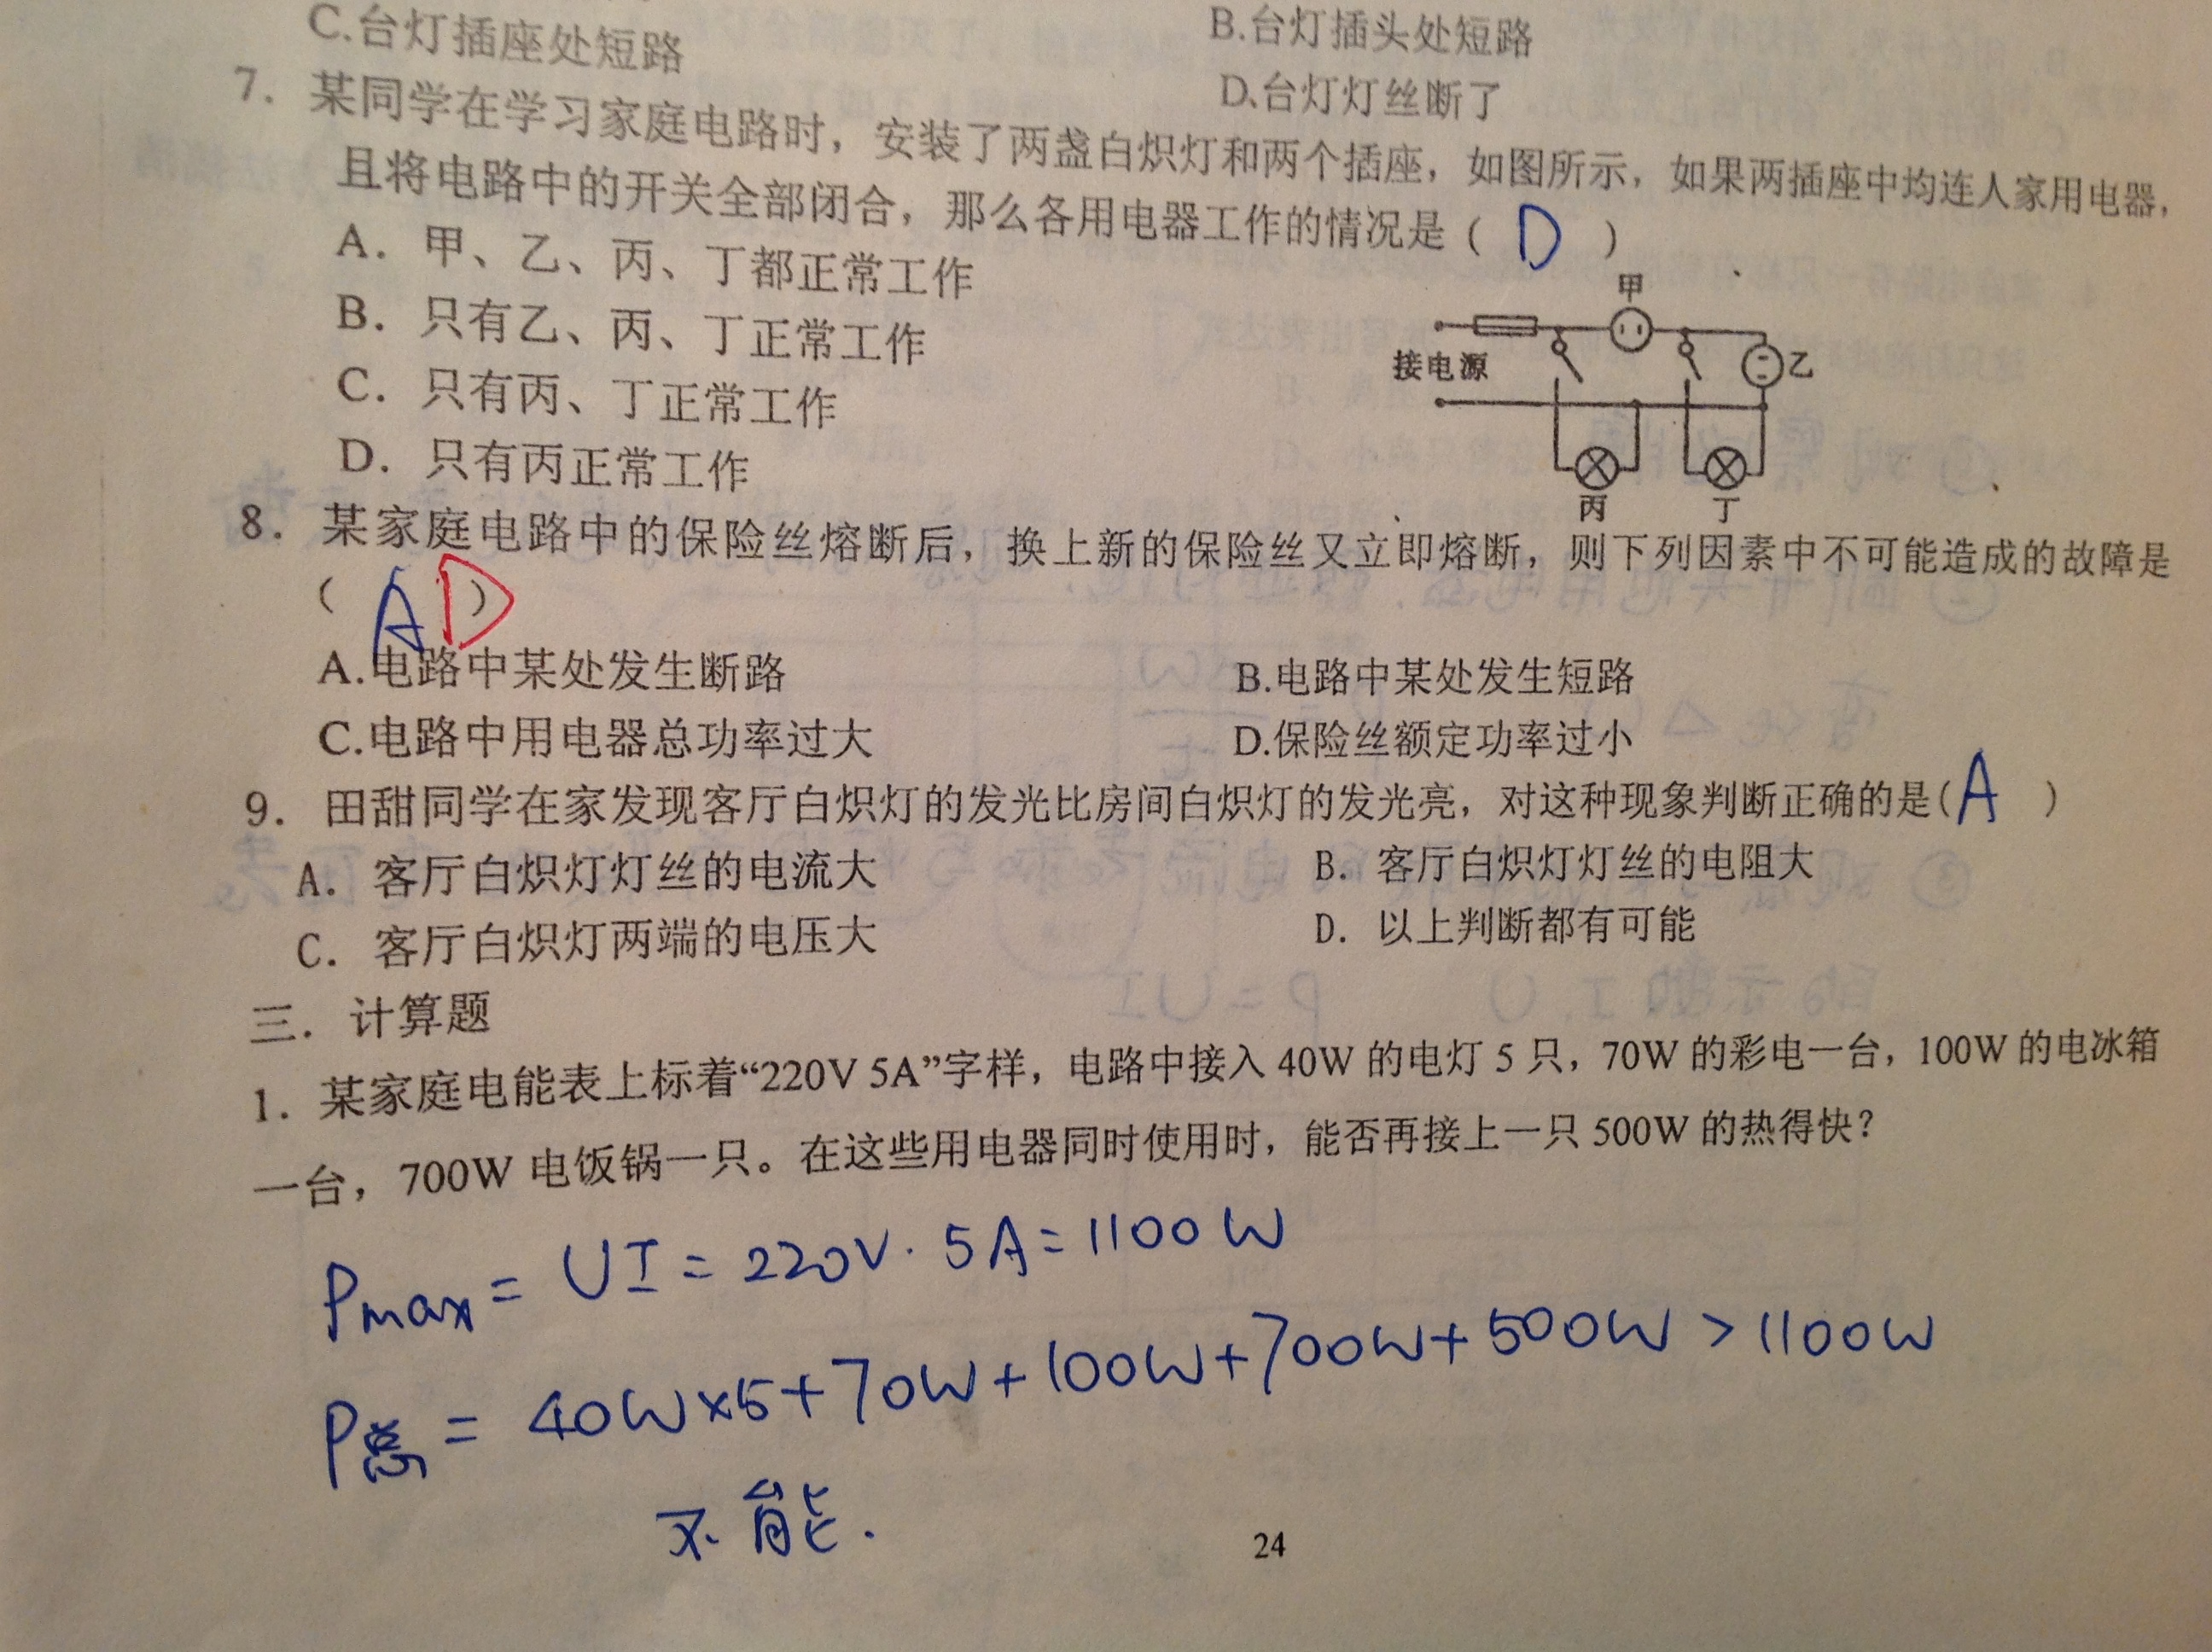 C.台灯插座处短路
B.台灯插头处短路
D、台灯灯丝断了
7. 某同学在学习家庭电路时，安装了两盏白炽灯和两个插座，如图所示，如果两插座中均连人家用电器，
且将电路中的开关全部闭合，那么各用电器工作的情况是（ D ）
A. 甲、乙、丙、丁都正常工作
B. 只有乙、丙、丁正常工作
C. 只有丙、丁正常工作
D. 只有丙正常工作
甲
接电源
乙
丙 丁
8. 某家庭电路中的保险丝熔断后，换上新的保险丝又立即熔断，则下列因素中不可能造成的故障是
（ A D ）
A.电路中某处发生断路
B.电路中某处发生短路
C.电路中用电器总功率过大
D.保险丝额定功率过小
9. 田甜同学在家发现客厅白炽灯的发光比房间白炽灯的发光亮，对这种现象判断正确的是(A )
A. 客厅白炽灯灯丝的电流大
B. 客厅白炽灯灯丝的电阻大
C. 客厅白炽灯两端的电压大
D. 以上判断都有可能
三. 计算题
1. 某家庭电能表上标着“220V 5A”字样，电路中接入 40W 的电灯 5 只，70W 的彩电一台，100W 的电冰箱
一台，700W 电饭锅一只。在这些用电器同时使用时，能否再接上一只 500W 的热得快？
Pmax = UI = 220V · 5A = 1100W
P总 = 40W×5+70W+100W+700W+500W > 1100W
不能.
24